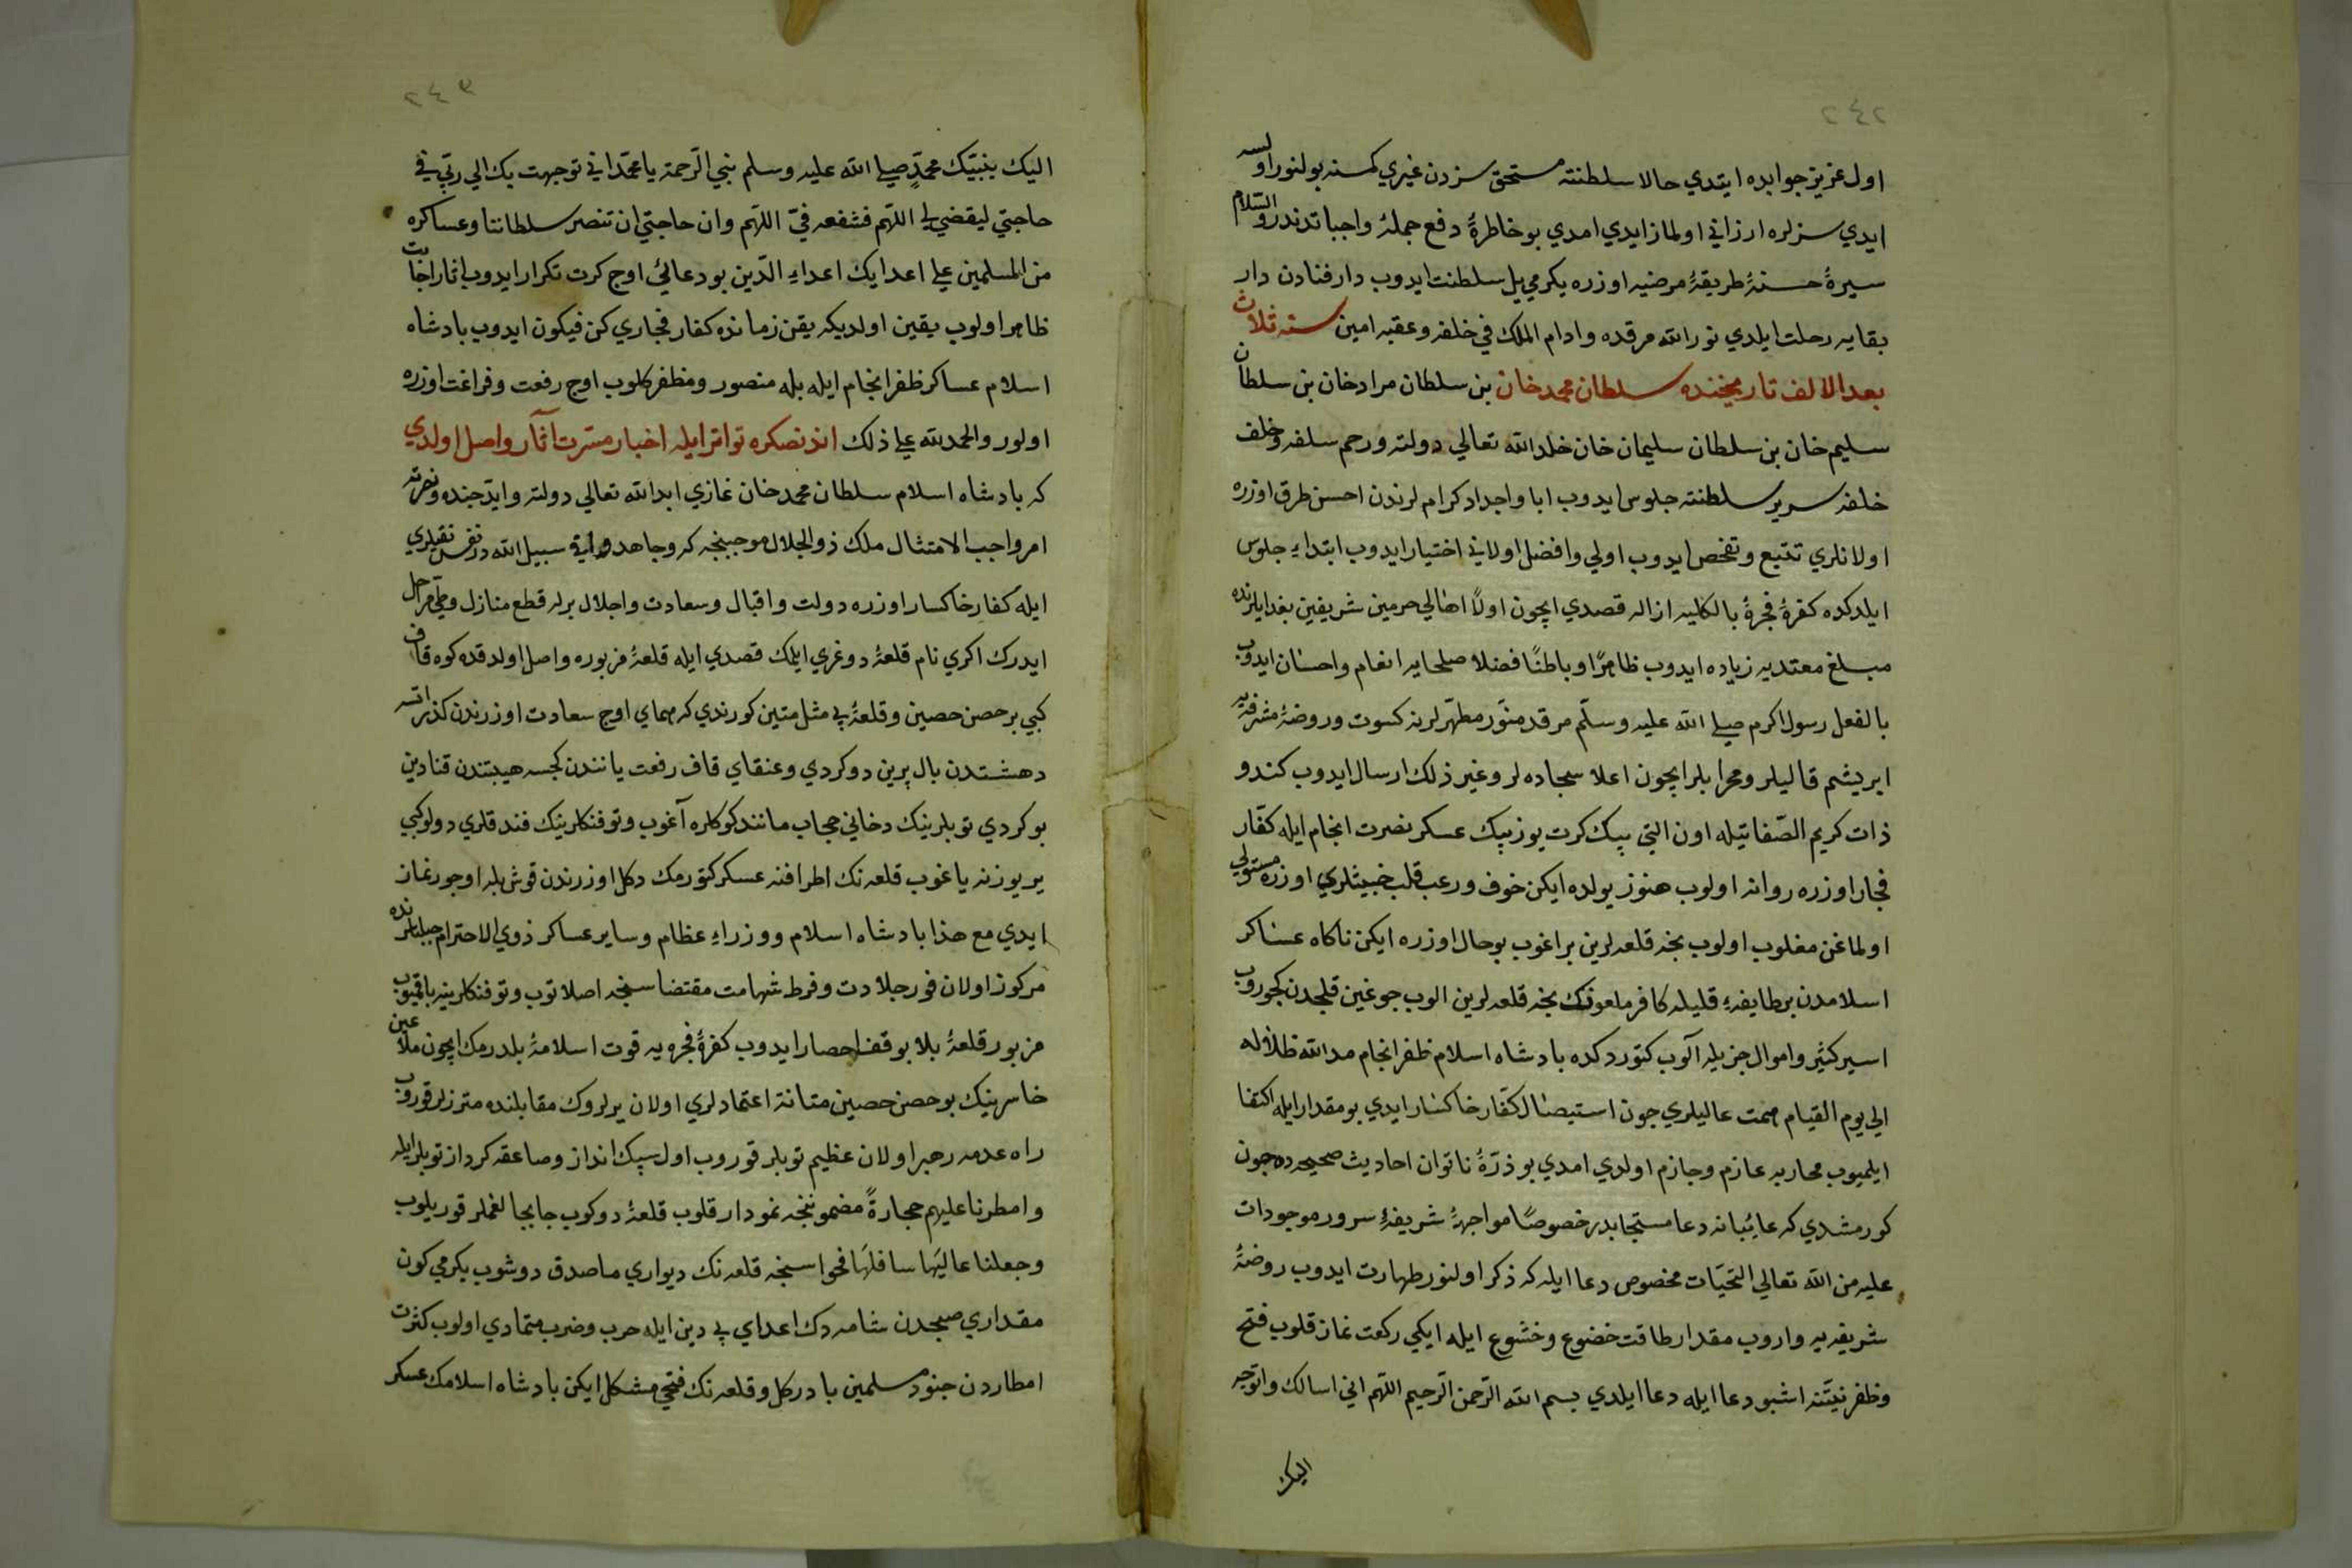 ٢٤٢
اول عزيز جوابده ايتدي حالا سلطنته مستحق سزدن غيري كمسنه بولنور اولسه
ايدي سزلره ارزاني اولماز ايدي امدي بو خاطرۀ دفع جملۀ واجباتدندر والسّلام
سيرۀ حسنۀ طريقۀ مرضيه اوزره يكرمي يل سلطنت ايدوب دار فنادن دار
بقايه رحلت ايلدي نور الله مرقده وادام الملك في خلفه وعقبه امين سنه ثلاث
بعد الالف تاريخنده سلطان محمد خان بن سلطان مراد خان بن سلطان
سليم خان بن سلطان سليمان خان خلد الله تعالي دولته ورحم سلفه وخلف
خلفه سرير سلطنته جلوس ايدوب ابا واجداد كرام لرندن احسن طرق اوزره
اولانلري تتبع وتفحص ايدوب اولي وافضل اولاني اختيار ايدوب ابتداء جلوس
ايلدكده كفرۀ فجرۀ بالكليه ازاله قصدي ايچون اولاً اهالي حرمين شريفين
مبلغ معتد به زياده ايدوب ظاهرًا وباطنًا فضلا صلحايه انعام واحسان ايدوب
بالفعل رسول اكرم صلي الله عليه وسلّم مرقد منوّر مطهّرلرينه كسوت وروضۀ مشرفه
ابريشم قاليلر ومحرابلر ايچون اعلا سجاده لر وغير ذلك ارسال ايدوب كندو
ذات كريم الصّفاتيله اون التي بيك كرت يوز بيك عسكر نصرت انجام ايله كفّار
فجار اوزره روانه اولوب هنوز يولده ايكن خوف ورعب قلب خبيثلري اوزره مستولي
اولماغن مغلوب اولوب نجه قلعه لرين براغوب بو حال اوزره ايكن ناكاه عساكر
اسلامدن بر طايفۀ قليله كافر ملعونك نجه قلعه لرين الوب جوغين قلجدن كچوروب
اسير كثير واموال جزيله آلوب كتوردكده بادشاه اسلام ظفر انجام مد الله ظلاله
الي يوم القيام همت عاليلري جون استيصال كفّار خاكسار ايدي بو مقدار ايله اكتفا
ايلميوب محاربه عازم وجازم اولدي امدي بو ذرّۀ ناتوان احاديث صحيحه ده چون
كورمشدي كه غائبانه دعا مستجابدر خصوصًا مواجهۀ شريفۀ سرور موجودات
عليه من الله تعالي التحيّات مخصوص دعا ايله كه ذكر اولنور طهارت ايدوب روضۀ
شريفه يه واروب مقدار طاقت خضوع وخشوع ايله ايكي ركعت نماز قلوب فتح
وظفر نيّتنه اشبو دعا ايله دعا ايلدي بسم الله الرّحمن الرّحيم اللّهم اني اسالك واتوجه
اليك
اليك بنبيّك محمّدٍ صلي الله عليه وسلم نبي الرّحمة يا محمّد اني توجهت بك الي ربّي في
حاجتي ليقضي لي اللّهم فشفعه فيّ اللّهم وان حاجتي ان تنصر سلطاننا وعساكره
من المسلمين علي اعدايك اعداء الدّين بو دعائي اوج كرت تكرار ايدوب اثار اجابت
ظاهر اولوب يقين اولديكه يقن زمانده كفار فجاري كن فيكون ايدوب بادشاه
اسلام عساكر ظفر انجام ايله بله منصور ومظفر كلوب اوج رفعت وفراغت اوزره
اولور والحمد لله علي ذلك اندنصكره تواتر ايله اخبار مسّرت آثار واصل اولدي
كه بادشاه اسلام سلطان محمد خان غازي ابد الله تعالي دولته وايّد جنده ونصرته
امر واجب الامتثال ملك ذو الجلال موجبنجه كه وجاهدوا في سبيل الله در
ايله كفار خاكسار اوزره دولت واقبال وسعادت واجلال برله قطع منازل وطي مراحل
ايدرك اكري نام قلعۀ دوغري ايلمك قصدي ايله قلعۀ مزبوره واصل اولدقده كوه قاف
كبي بر حصن حصين وقلعۀ بي مثل متين كورندي كه هماي اوج سعادت اوزرندن كذر اتسه
دهشتدن بال پرين دوكردي وعنقاي قاف رفعت يانندن كجسه هيبتندن قنادين
بوكردي توبلرينك دخاني حجاب مانند كوكلره آغوب وتوفنكلرينك فندقلري دولو كبي
ير يوزنه ياغوب قلعه نك اطرافنه عسكر كتورمك دكل اوزرندن قوش بله اوجورغاز
ايدي مع هذا بادشاه اسلام ووزراء عظام وساير عساكر ذوي الاحترام جبلتلرنده
مركوز اولان فور جلادت وفرط شهامت مقتضاسنجه اصلا توب وتوفنكلرينه باقميوب
مزبور قلعۀ بلا توقف احصار ايدوب كفرۀ فجره يه قوت اسلامۀ بلدرمك ايچون ملاعين
خاسرينك بو حصن حصين متانة اعتمادلري اولان يرلروك مقابلنده مترزلر قوروب
راه عدمه رهبر اولان عظيم توبلر قوروب اول سپك انداز وصاعقه كردار توبلر ايله
وامطرنا عليهم حجارةً مضموننجه نمودار قلوب قلعۀ دوكوب جابجا لغملر قوريلوب
وجعلنا عاليَها سافلَها فحواسنجه قلعه نك ديواري ماصدق دوشوب يكرمي كون
مقداري صبحدن شامه دك اعداي بي دين ايله حرب وضرب متمادي اولوب كثرت
امطاردن جنود مسلمين بادركل وقلعه نك فتحي مشكل ايكن بادشاه اسلامك عسكر